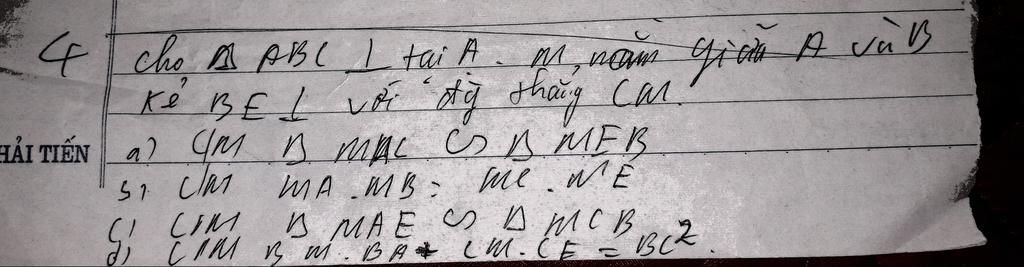 4 cho Δ ABC ⊥ tại A. M nằm giữa A và B
Kẻ BE ⊥ với đg thẳng CM.
HẢI TIẾN
a) C/M Δ MAC ∽ Δ MEB
b) C/M MA.MB = MC.ME
c) C/M Δ MAE ∽ Δ MCB
d) C/M BM.BA + CM.CE = BC².